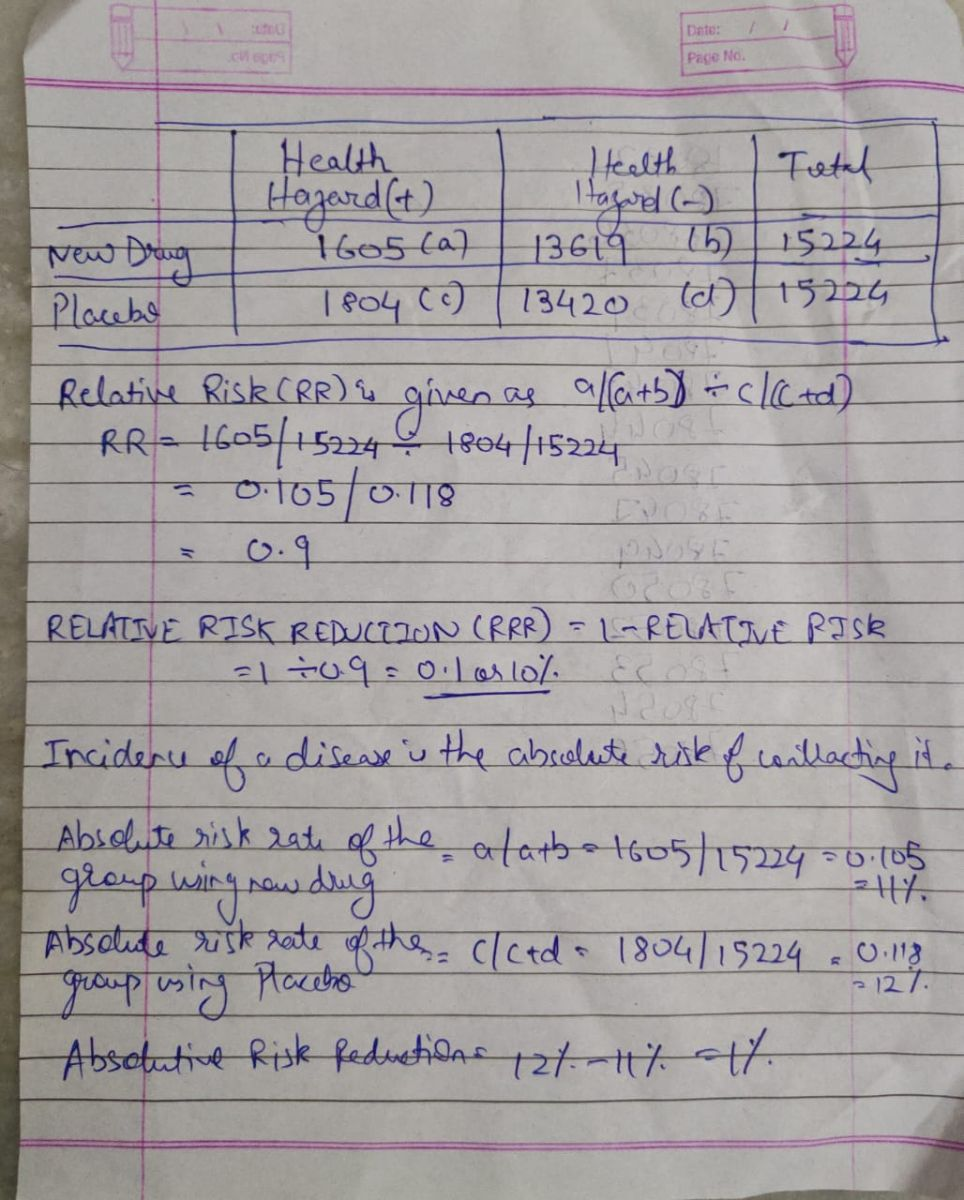 Date: / /
Page No.
Health Hazard(+) Health Hazard(-) Total
New Drug 1605 (a) 13619 (b) 15224
Placebo 1804 (c) 13420 (d) 15224
Relative Risk (RR) is given as a/(a+b) ÷ c/(c+d)
RR = 1605/15224 ÷ 1804/15224
= 0.105/0.118
= 0.9
RELATIVE RISK REDUCTION (RRR) = 1-RELATIVE RISK
=1 ÷0.9 = 0.1 or 10%.
Incidence of a disease is the absolute risk of contracting it.
Absolute risk rate of the = a/a+b = 1605/15224 = 0.105
group using new drug = 11%.
Absolute risk rate of the = c/c+d = 1804/15224 = 0.118
group using Placebo = 12%.
Absolutive Risk Reduction = 12% - 11% = 1%.